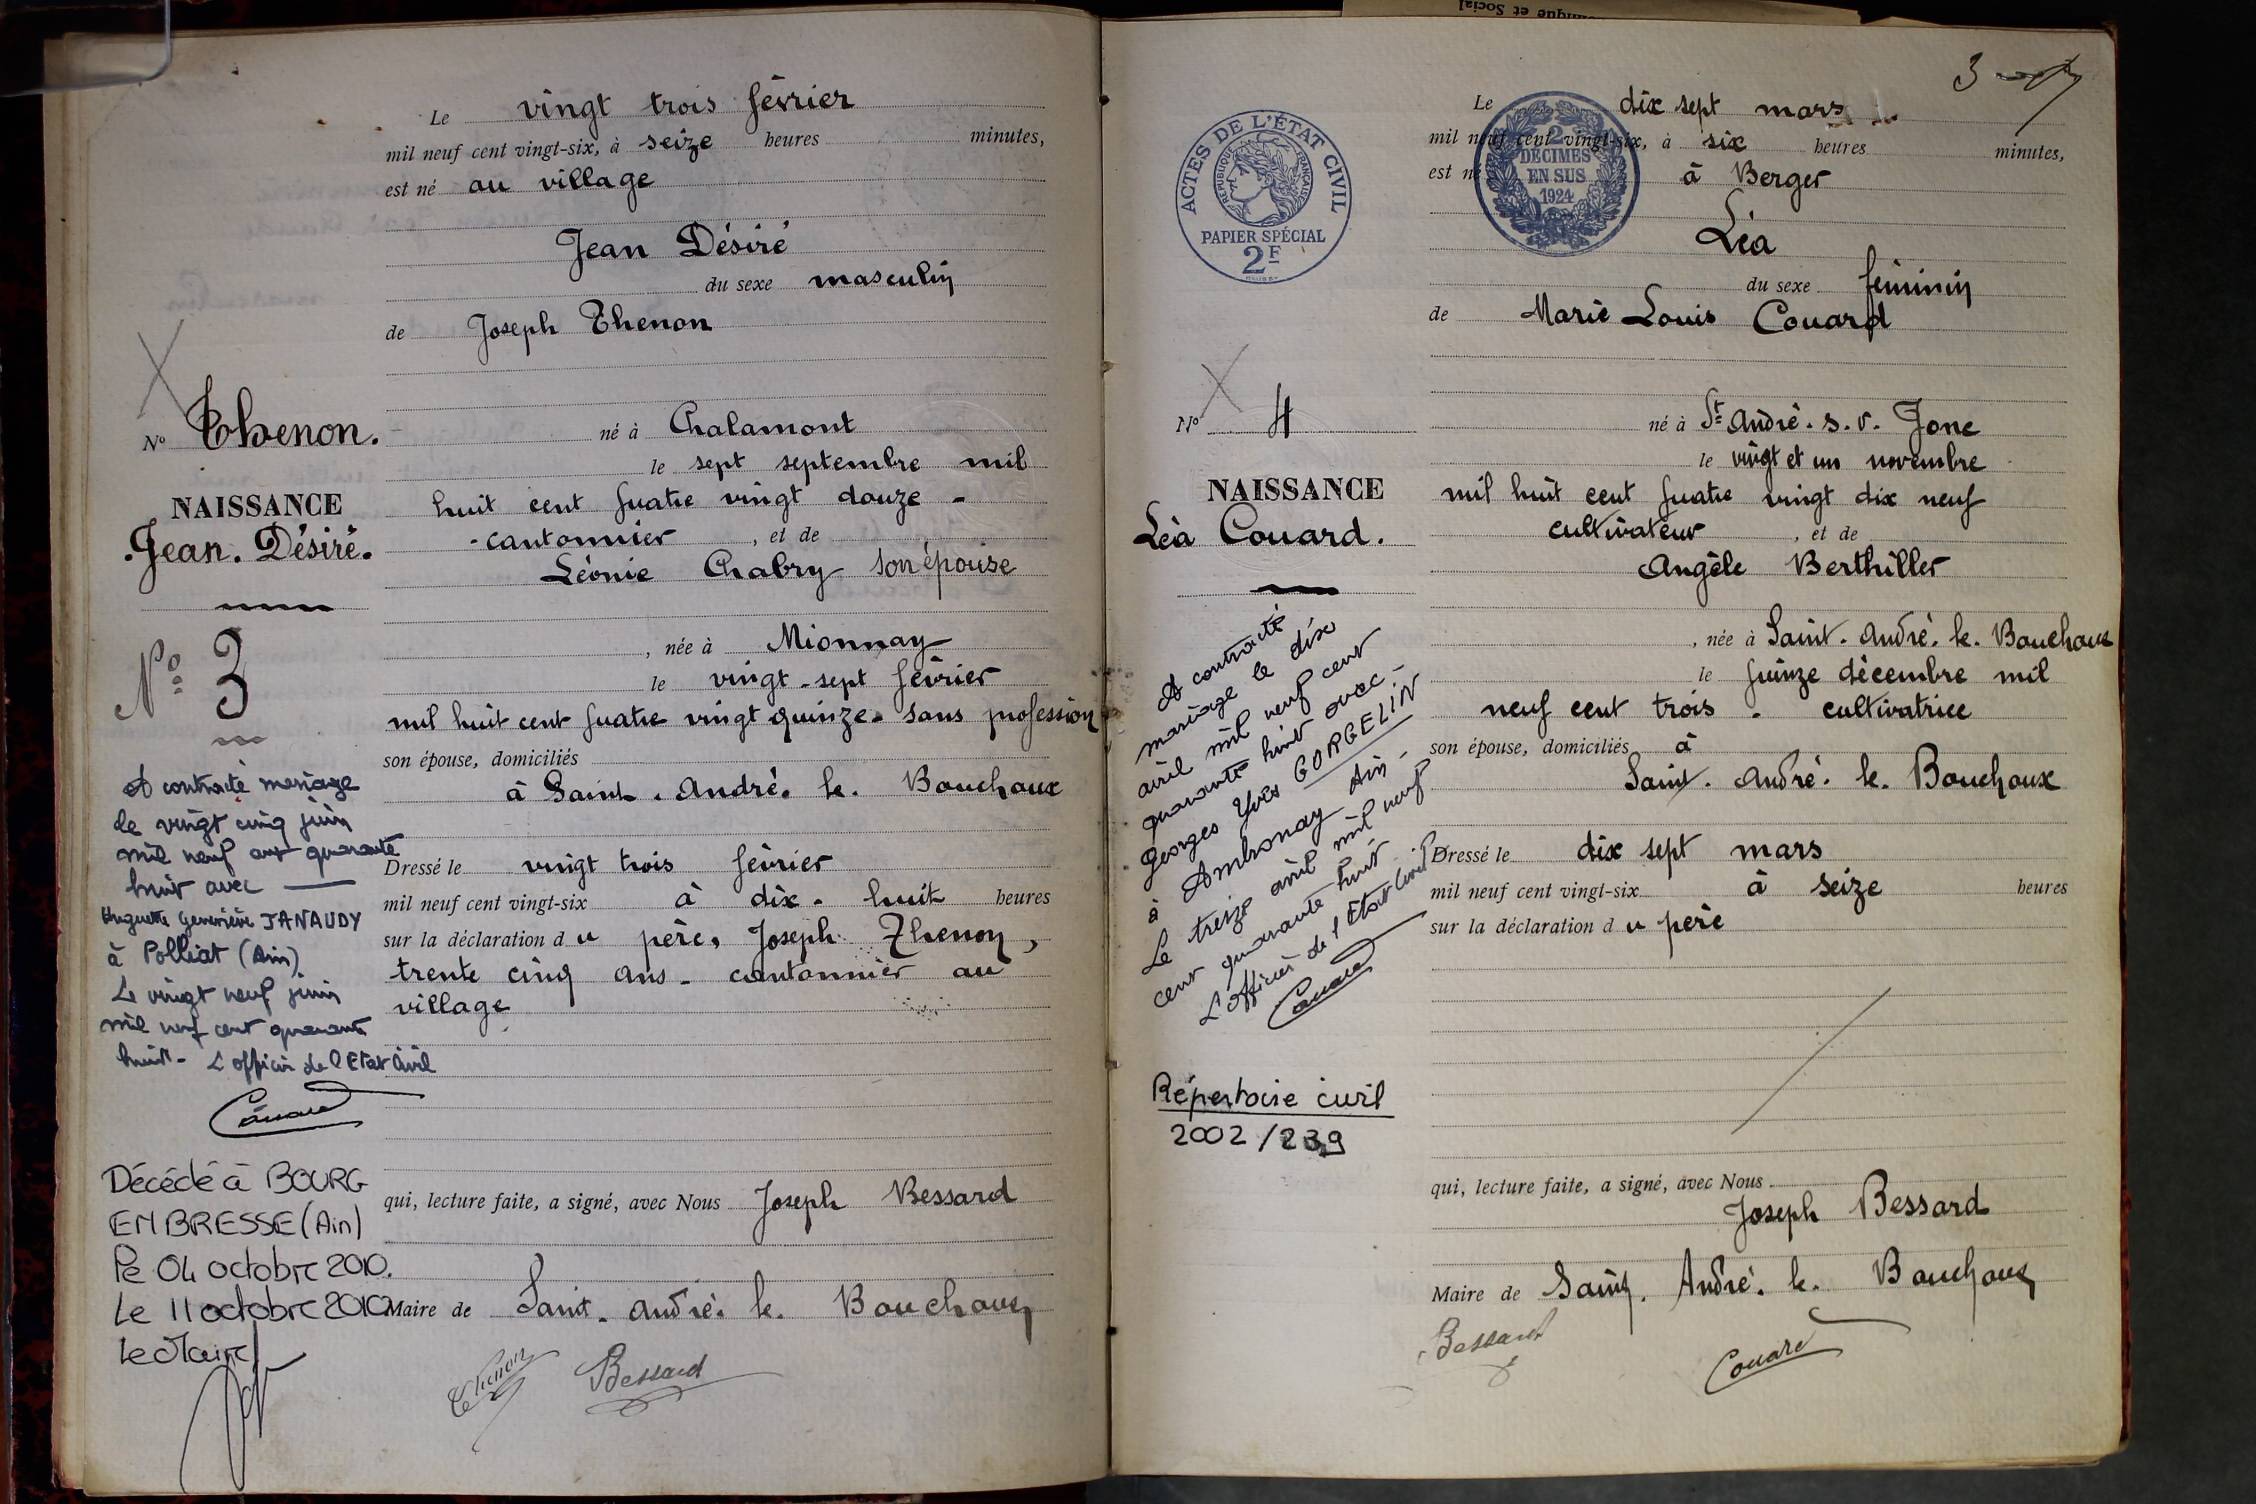 Le vingt trois février
mil neuf cent vingt-six, à seize heures minutes,
est né au village
Jean Désiré
du sexe masculin
de Joseph Thenon
né à Chalamont
le sept septembre mil
huit cent quatre vingt douze -
- cantonnier , et de
Léonie Chabry son épouse
, née à Mionnay
le vingt-sept février
mil huit cent quatre vingt quinze - sans profession
son épouse, domiciliés
à Saint. André. le. Bouchoux
Dressé le vingt trois février
mil neuf cent vingt-six à dix - huit heures
sur la déclaration d u père, Joseph Thenon,
trente cinq ans - cantonnier au
village
qui, lecture faite, a signé, avec Nous Joseph Bessard
Maire de Saint. André. le. Bouchoux
Thenon Bessard
No Thenon.
NAISSANCE
. Jean. Désiré.
No 3
A contracté mariage
le vingt cinq juin
mil neuf cent quarante
huit avec
Huguette Geneviève JANAUDY
à Polliat (Ain)
Le vingt neuf juin
mil neuf cent quarante
huit - L'officier de l'Etat Civil
Couard
Décédé à BOURG
EN BRESSE (Ain)
le 04 octobre 2010.
Le 11 octobre 2010
Le Maire
ique et Social
3
Le dix sept mars
mil neuf cent vingt-six, à six heures minutes,
est né à Berger
Léa
du sexe féminin
de Marie Louis Couard
né à St André. s. v. Jonc
le vingt et un novembre
mil huit cent quatre vingt dix neuf
cultivateur , et de
Angèle Berthiller
, née à Saint. André. le. Bouchoux
le quinze décembre mil
neuf cent trois - cultivatrice
son épouse, domiciliés à
Saint. André. le. Bouchoux
Dressé le dix sept mars
mil neuf cent vingt-six à seize heures
sur la déclaration d u père
qui, lecture faite, a signé, avec Nous
Joseph Bessard
Maire de Saint. André. le. Bouchoux
Bessard Couard
ACTES DE L'ÉTAT CIVIL
RÉPUBLIQUE FRANÇAISE
PAPIER SPÉCIAL
2F
2
DÉCIMES
EN SUS
1924
No 4
NAISSANCE
Léa Couard.
A contracté
mariage le dix
avril mil neuf cent
quarante huit avec -
Georges Yves GORGELIN
à Ambronay Ain -
Le treize avril mil neuf
cent quarante huit
L'officier de l'Etat Civil
Couard
Répertoire civil
2002/239